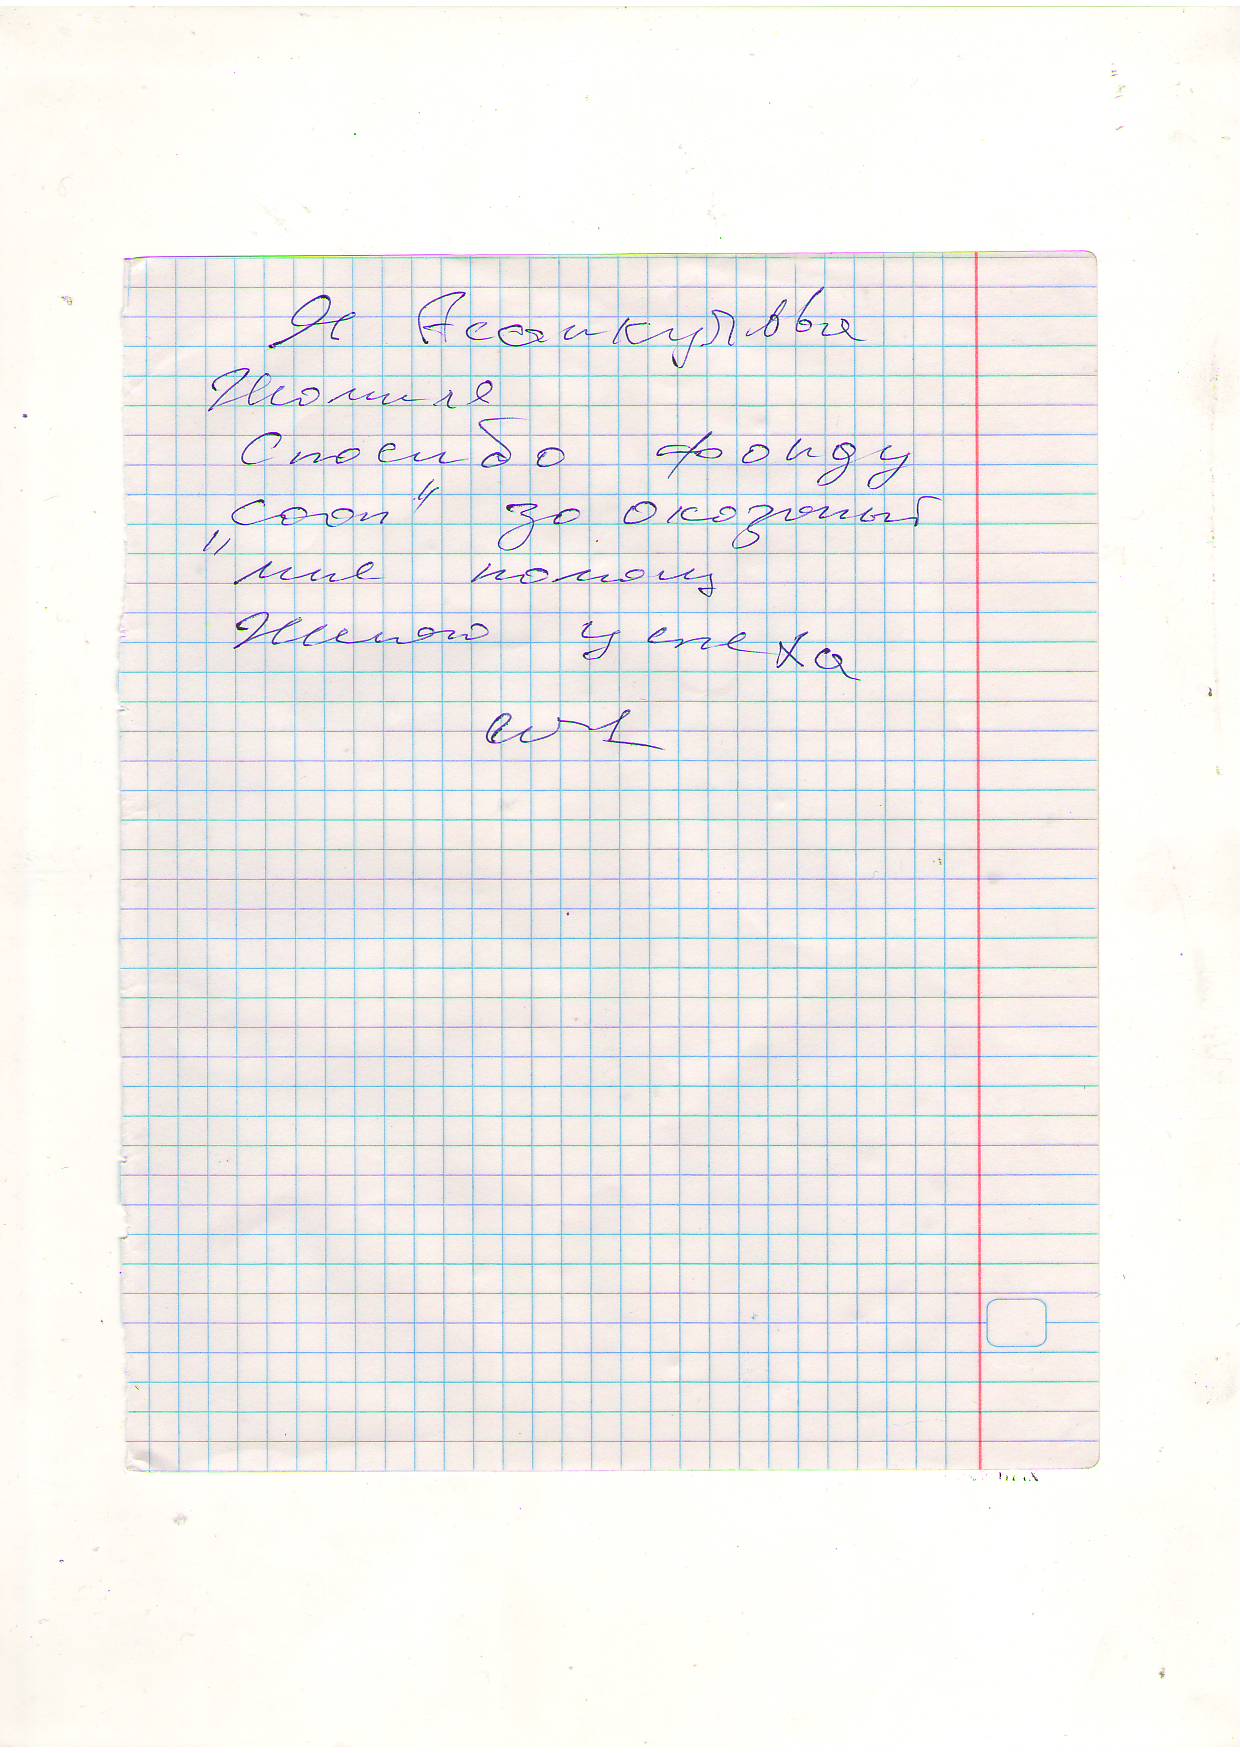 Я Асанкулова
Жамиля
Спасибо фонду
„сооп“ за оказаный
мне помощ
Желаю успеха